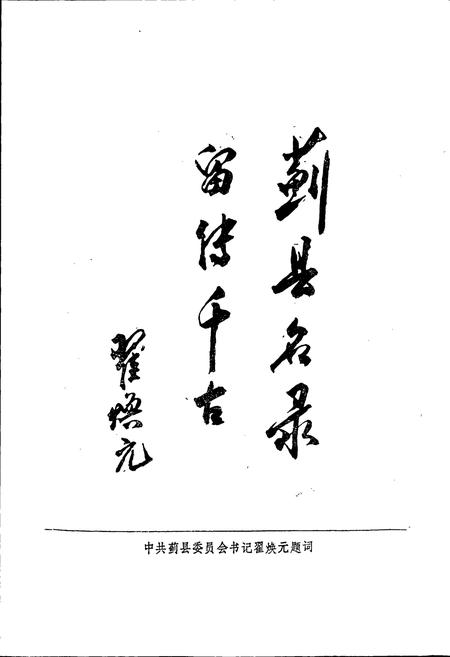 蓟县名录
留传千古
翟焕元
中共蓟县委员会书记翟焕元题词